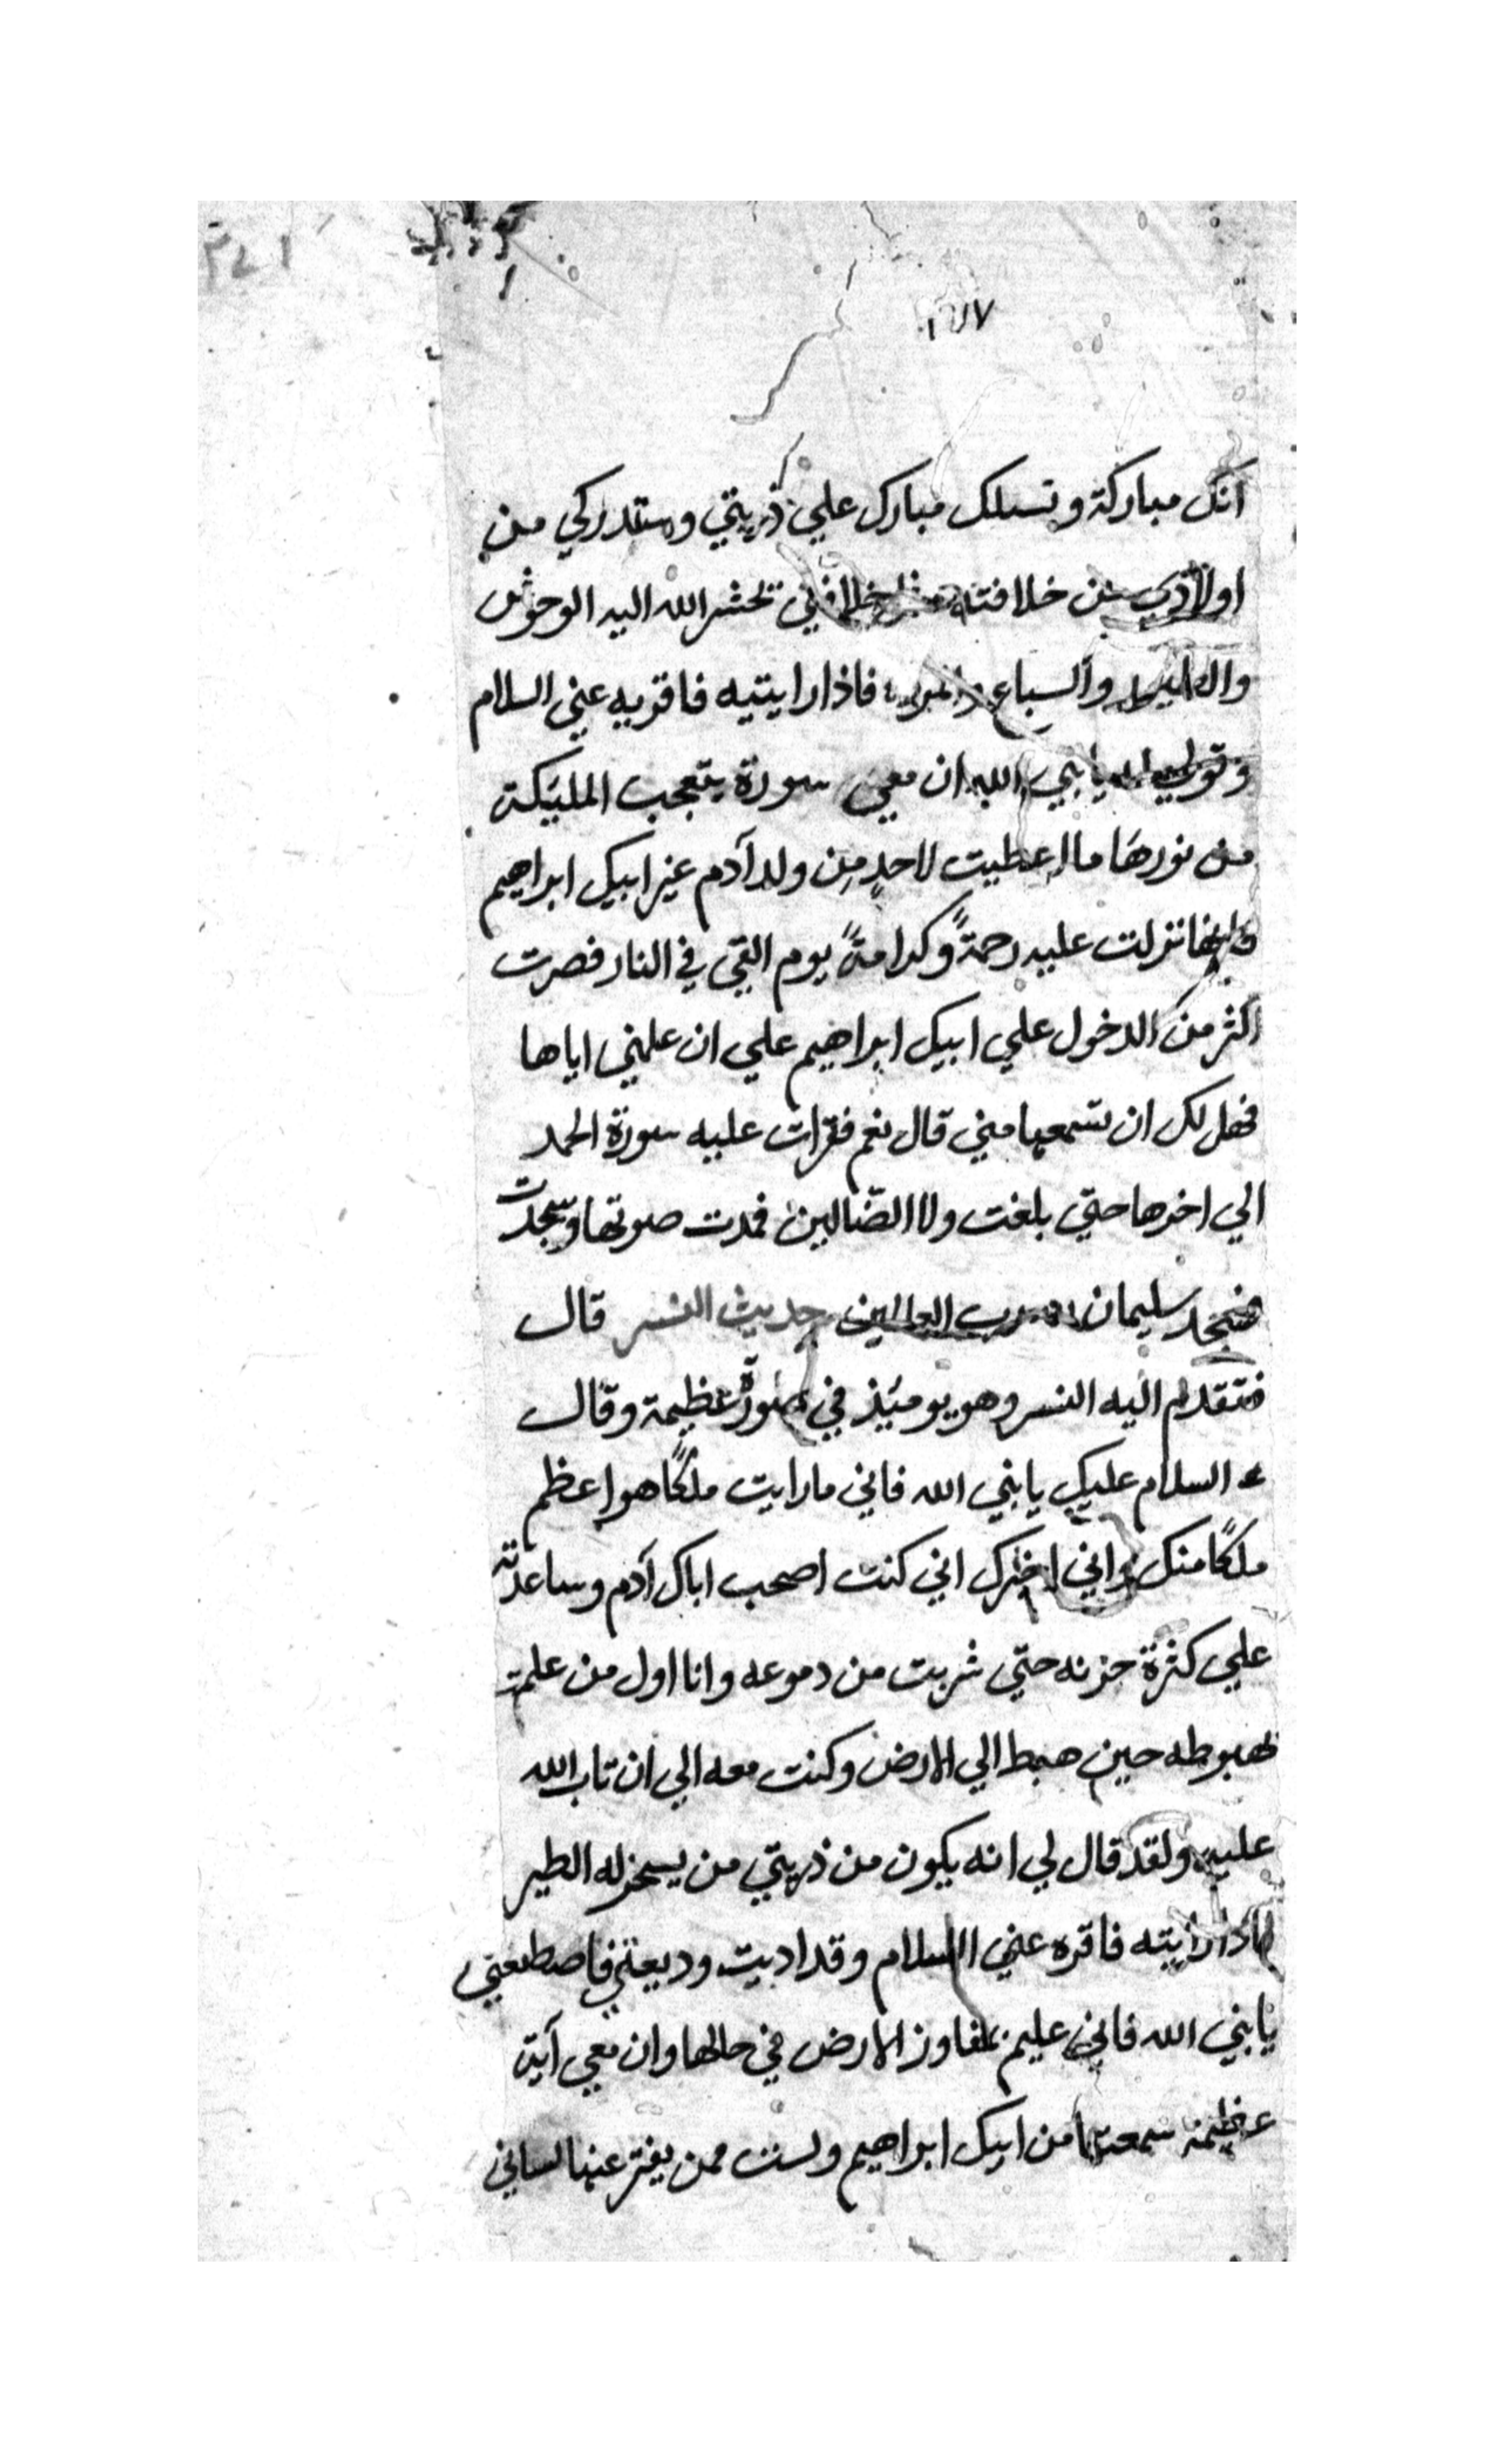 انك مباركة ونسلك مبارك علي ذريتي وستدركي من
اولادي من خلافته خلافتي تحشر الله اليه الوحوش
والسباع فاذا رايتيه فاقريه عني السلام
وقولي له يا نبي الله ان معي سورة يتعجب المليكة
من نورها ما اعطيت لاحدٍ مِن ولد آدم غير ابيك ابراهيم
فانها نزلت عليه رحمةً وكرامةً يوم القي في النار فصرت
اكثر من الدخول علي ابيك ابراهيم علي ان علمني اياها
فهل لك ان تسمعها مني قال نعم فقرات عليه سورة الحمد
الي اخرها حتي بلغت ولا الضّالين فمدت صوتها وسجدت
فسجد سليمان لرب العالمين حديث النسر قال
فتقدم اليه النسر وهو يومئذ في صورة عظيمة وقال
السلام عليك يا نبي الله فاني ما رايت ملكًا هو اعظم
ملكًا منك واني اخبرك اني كنت اصحب اباك آدم وساعدته
علي كثرة حزنه حتي شربت من دموعه وانا اول من علمت
بهبوطه حين هبط الي الارض وكنت معه الي ان تاب الله
عليه ولقد قال لي انه يكون من ذريتي من يسخر له الطير
فاذا رايته فاقره عني السلام وقد اديت وديعتي فاصطنعني
يا نبي الله فاني عليم بمفاوز الارض في حالها وان معي آية
عظيمة سمعتها من ابيك ابراهيم ولست ممن يفتر عنها لساني